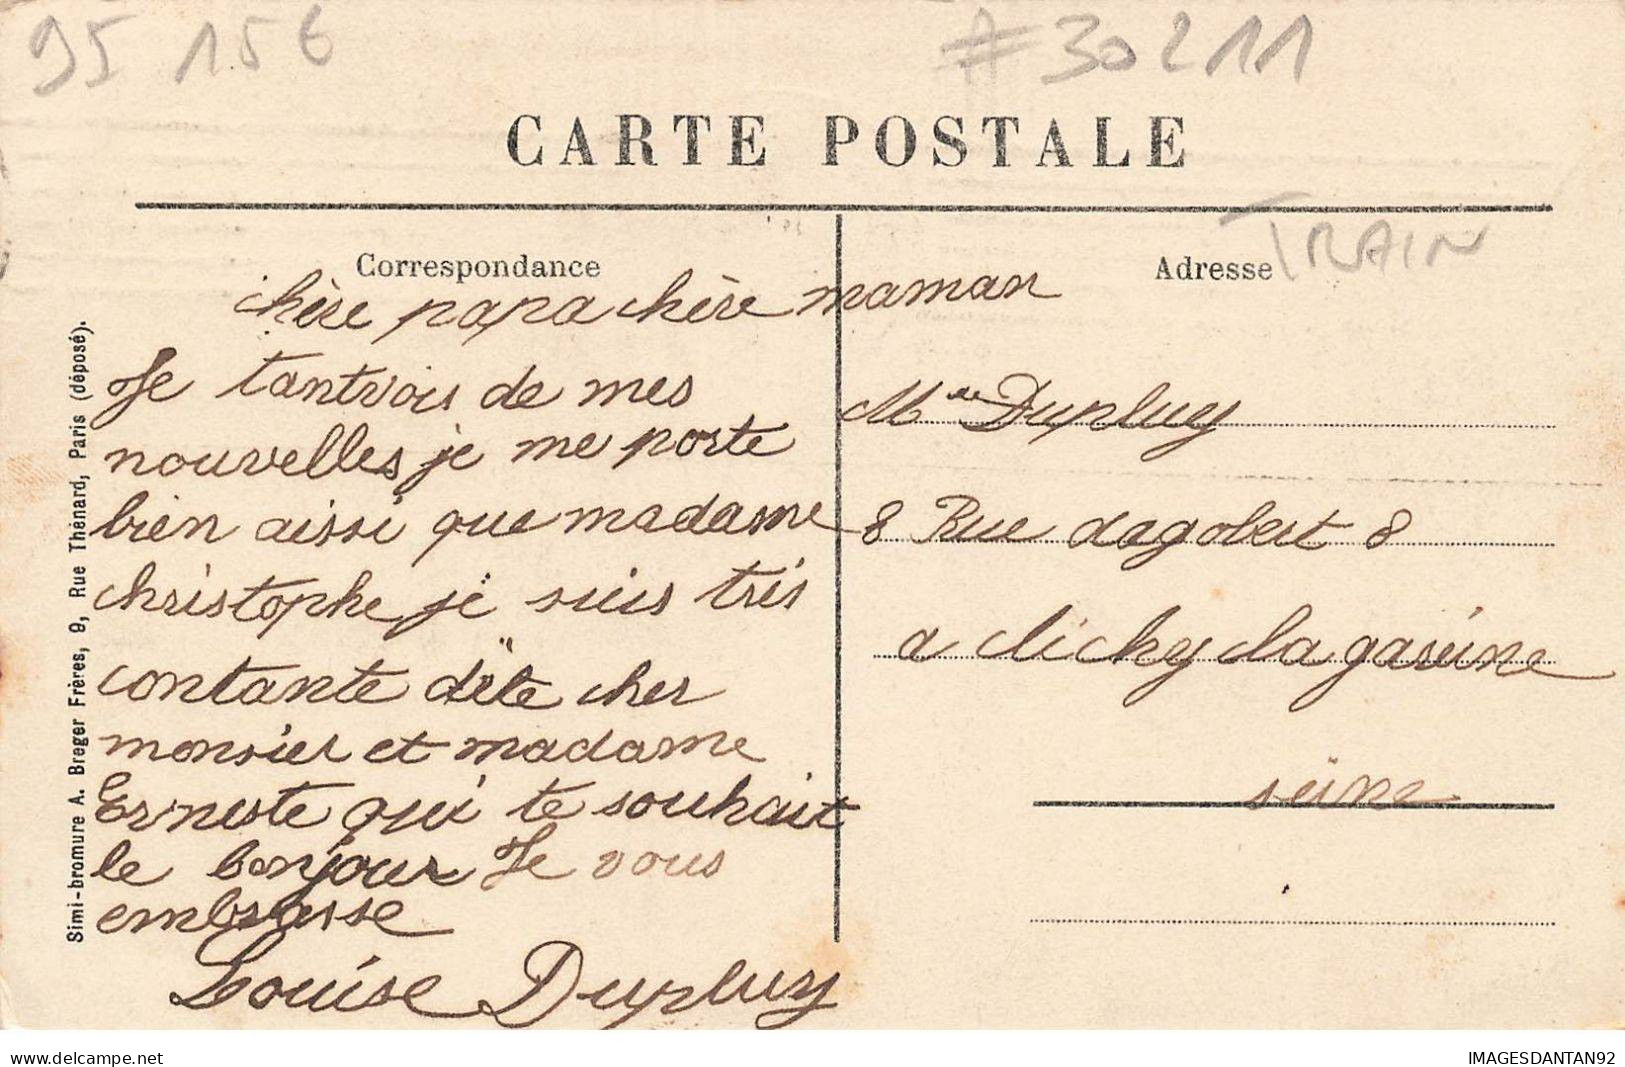 95 156
#30211
CARTE POSTALE
TRAIN
Correspondance
Adresse
chère papa chère maman
Je tantvois de mes
nouvelles je me porte
bien aissi que madame
christophe je suis très
contante dite cher
monsier et madame
Erneste qui te souhait
le bonjour Je vous
embrasse
Louise Dupluy
Dupluy
8 Rue dagobert 8
a clichy la gaseine
seine
Simi-bromure A. Breger Frères, 9, Rue Thénard, Paris (déposé).
delcampe.net
IMAGESDANTAN92